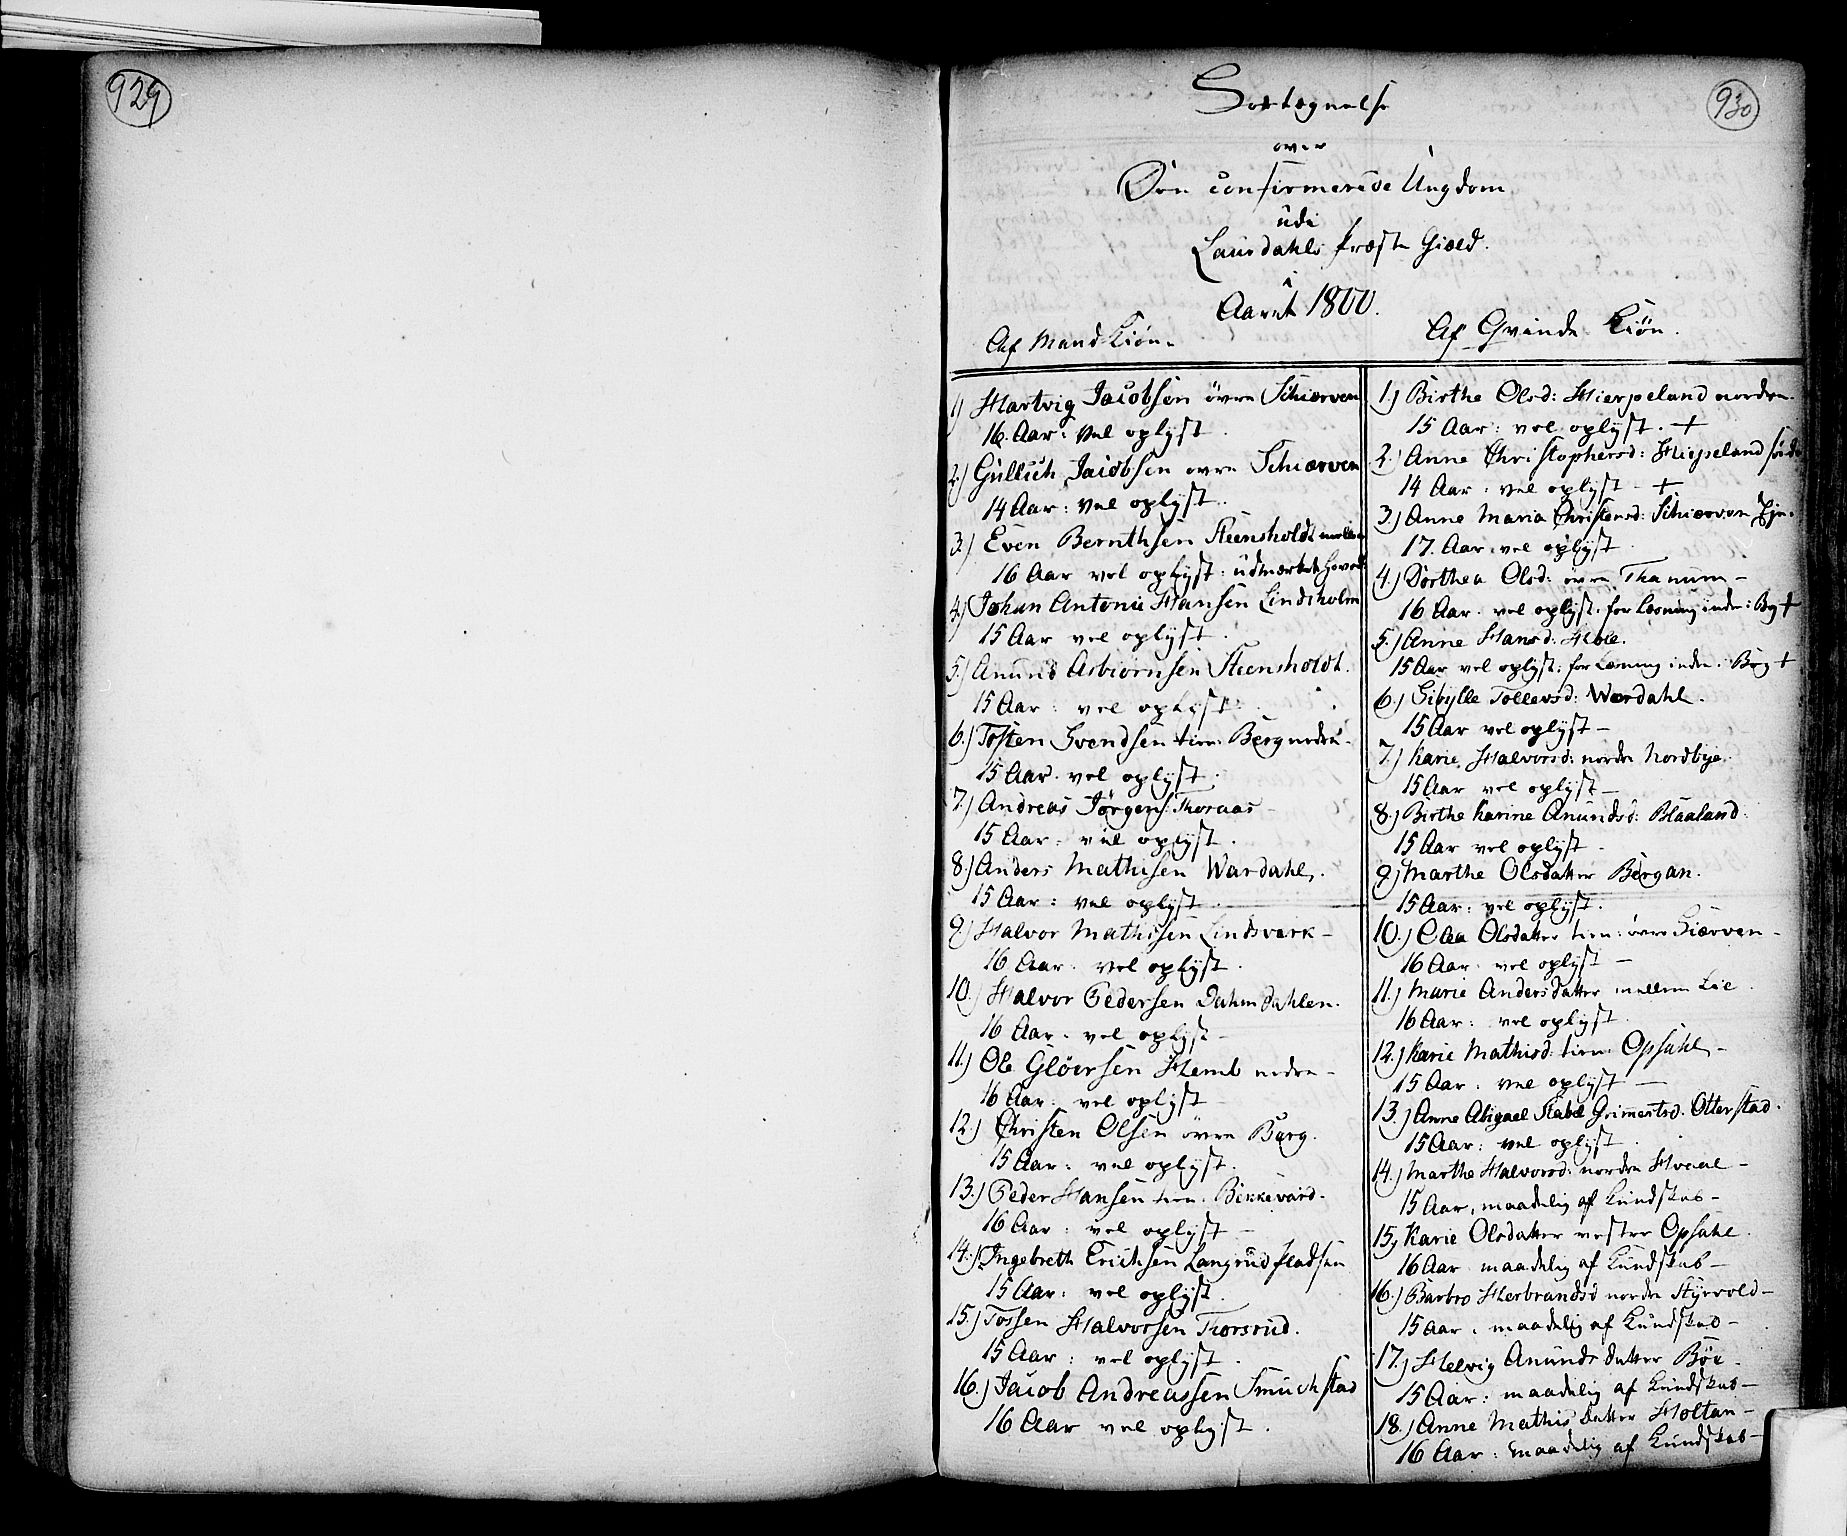 929
930
Fortegnelse
over
Den confirmerede Ungdom
udi
Laurdahls Præste Gield.
i
Aaret 1800.
Af Mand Kiøn.
1) Hartvig Jacobsen övre Schiærven
16. Aar: vel oplyst.
2) Gullich Jacobsen övre Schiærven
14 Aar: vel oplyst.
3.) Even Bernthsen Steensholdt mellem
16 Aar vel oplyst: udmærket Hoved:
4.) Johan Antonie Hansen Lindsholm
15 Aar vel oplyst.
5.) Anund Asbiørnsen Steensholdt.
15 Aar: vel oplyst.
6.) Tosten Svendsen tien: Berg nedre.
15 Aar. vel oplyst.
7.) Andreas Jörgens: Thoraas
15 Aar: vel oplyst.
8.) Anders Mathisen Wardahl.
15 Aar: vel oplyst.
9.) Halvor Mathisen Lindsverk –
16 Aar: vel oplyst.
10.) Halvor Pedersen Dahmdahlen.
16 Aar: vel oplyst –
11.) Ole Glöersen Hemb nedre –
16 Aar: vel oplyst –
12.) Christen Olsen övre Berg.
15 Aar: vel oplyst.
13.) Peder Hansen tien: Bekkevard.
16 Aar: vel oplyst –
14.) Ingebreth Erichsen Langrud pladsen
15 Aar: vel oplyst.
15.) Tossen Halvorsen Thorsrud.
15 Aar: vel oplyst.
16.) Jacob Andreassen Smuchstad
16 Aar vel oplyst.
Af Qvinde Kiøn.
1.) Birthe Olsd: Hierpeland nordre.
15 Aar: vel oplyst. +
2.) Anne Christophersd: Hierpeland søndr
14 Aar: vel oplyst – +
3.) Anne Maria Christensd: Schiærven Eje.
17. Aar. vel oplyst.
4.) Dorthea Olsd: övre Thanum –
16 Aar. vel oplyst. for Læsning inde: Bog +
5.) Anne Hansd: Hole.
15 Aar vel oplyst: for Læsning inden: Bog +
6.) Sibylle Tollevsd: Wærdahl.
15 Aar vel oplyst –
7.) Karie Halvorsd: nordre Nordbye.
15 Aar vel oplyst –
8.) Birthe Karine Anundsd: Blaaland.
15 Aar vel oplyst –
9.) Marthe Olsdatter Bergan.
15 Aar: vel oplyst.
10.) Elea Olsdatter tien: övre Giærven –
16 Aar: vel oplyst –
11.) Marie Andersdatter mellem Lie.
16 Aar: vel oplyst.
12.) Karie Mathisd: tien: Opsahl –
15 Aar: vel oplyst –
13.) Anne Abigael Stabel Grimestsd. Otterstad.
15 Aar: vel oplyst.
14.) Marthe Halvorsd: nordre Hvaal –
15 Aar, maadelig af Kundskab –
15.) Karie Olsdatter vestre Opsahl.
16 Aar maadelig af Kundskab –
16.) Barbro Herbrandsd nordre Styrvold –
15 Aar, maadelig af Kundskab –
17.) Helvig Anunds datter Böe –
15 Aar: maadelig af Kundskab –
18.) Anne Mathis datter Holtan –
16 Aar: maadelig af Kundskab –